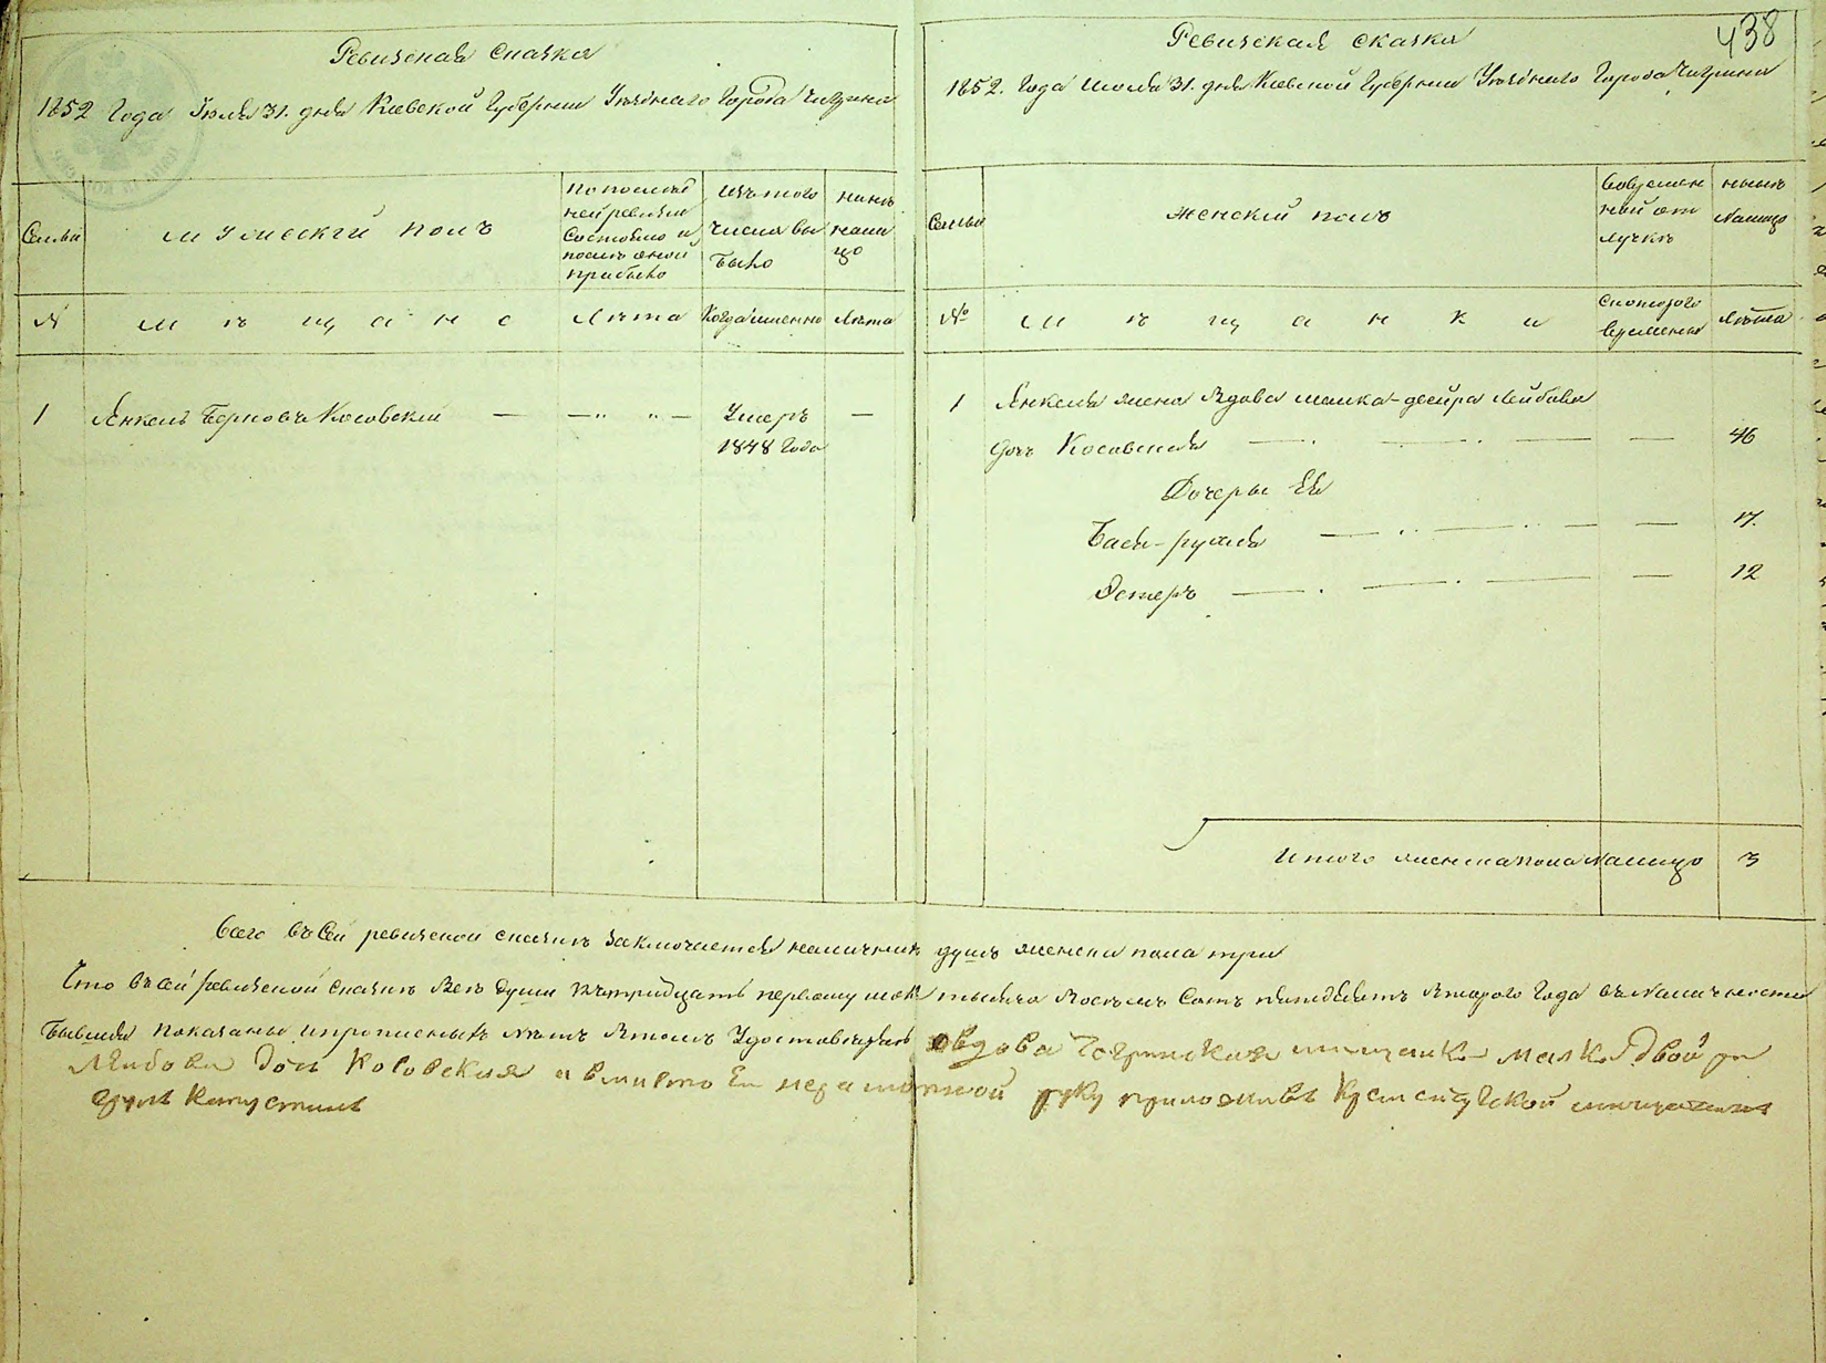 438
Ревизская сказка
1852 Года Июля 31. дня Киевской Губернии Уезднаго Города Чигрина
Семьи
мужескій полъ
По послѣд
ней ревизіи
Состояло и
послѣ оной
прибыло
Изъ того
числа вы
было
нынѣ
нали
цо
№
мѣщане
Лѣта
Когда именно
Лѣта
1 Янкель Берковъ Косовскій — — — Умеръ —
1848 Года
Ревизская сказка
1852. Года Июля 31. дня Киевской Губернии Уезднаго Города Чигрина
Семьи
женскій полъ
Вовремен
ной от
лучкѣ
нынѣ
налицо
№
мѣщанки
Скоторого
времени
Лѣта
1 Янкеля жена Вдова малка-двейра Лейбова
дочъ Косовская — — — — 46
Дочеры Ея
Бася-рухля — — — — 17.
Эстеръ — — — — 12
Итого женска пола налицо 3
Всего въ сей ревизской сказкѣ заключается наличныхъ душъ женска пола три
Что въ сей ревизской сказкѣ Всѣ души къ тридцать первому июля тысяча Восемъ Сотъ пятдесятъ Второго Года въ наличности
Бывшія показаны и прописныхъ нѣтъ Втомъ Удостовѣряю вдова Чигринская мищанка малка Двойра
Лейбова дочъ Косовская а вмисто Ея неграмотной руку приложилъ